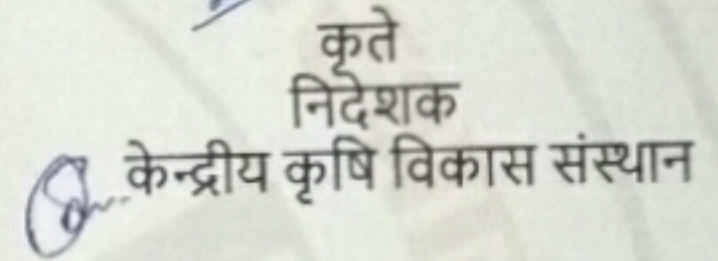 कृते
निदेशक
केन्द्रीय कृषि विकास संस्थान